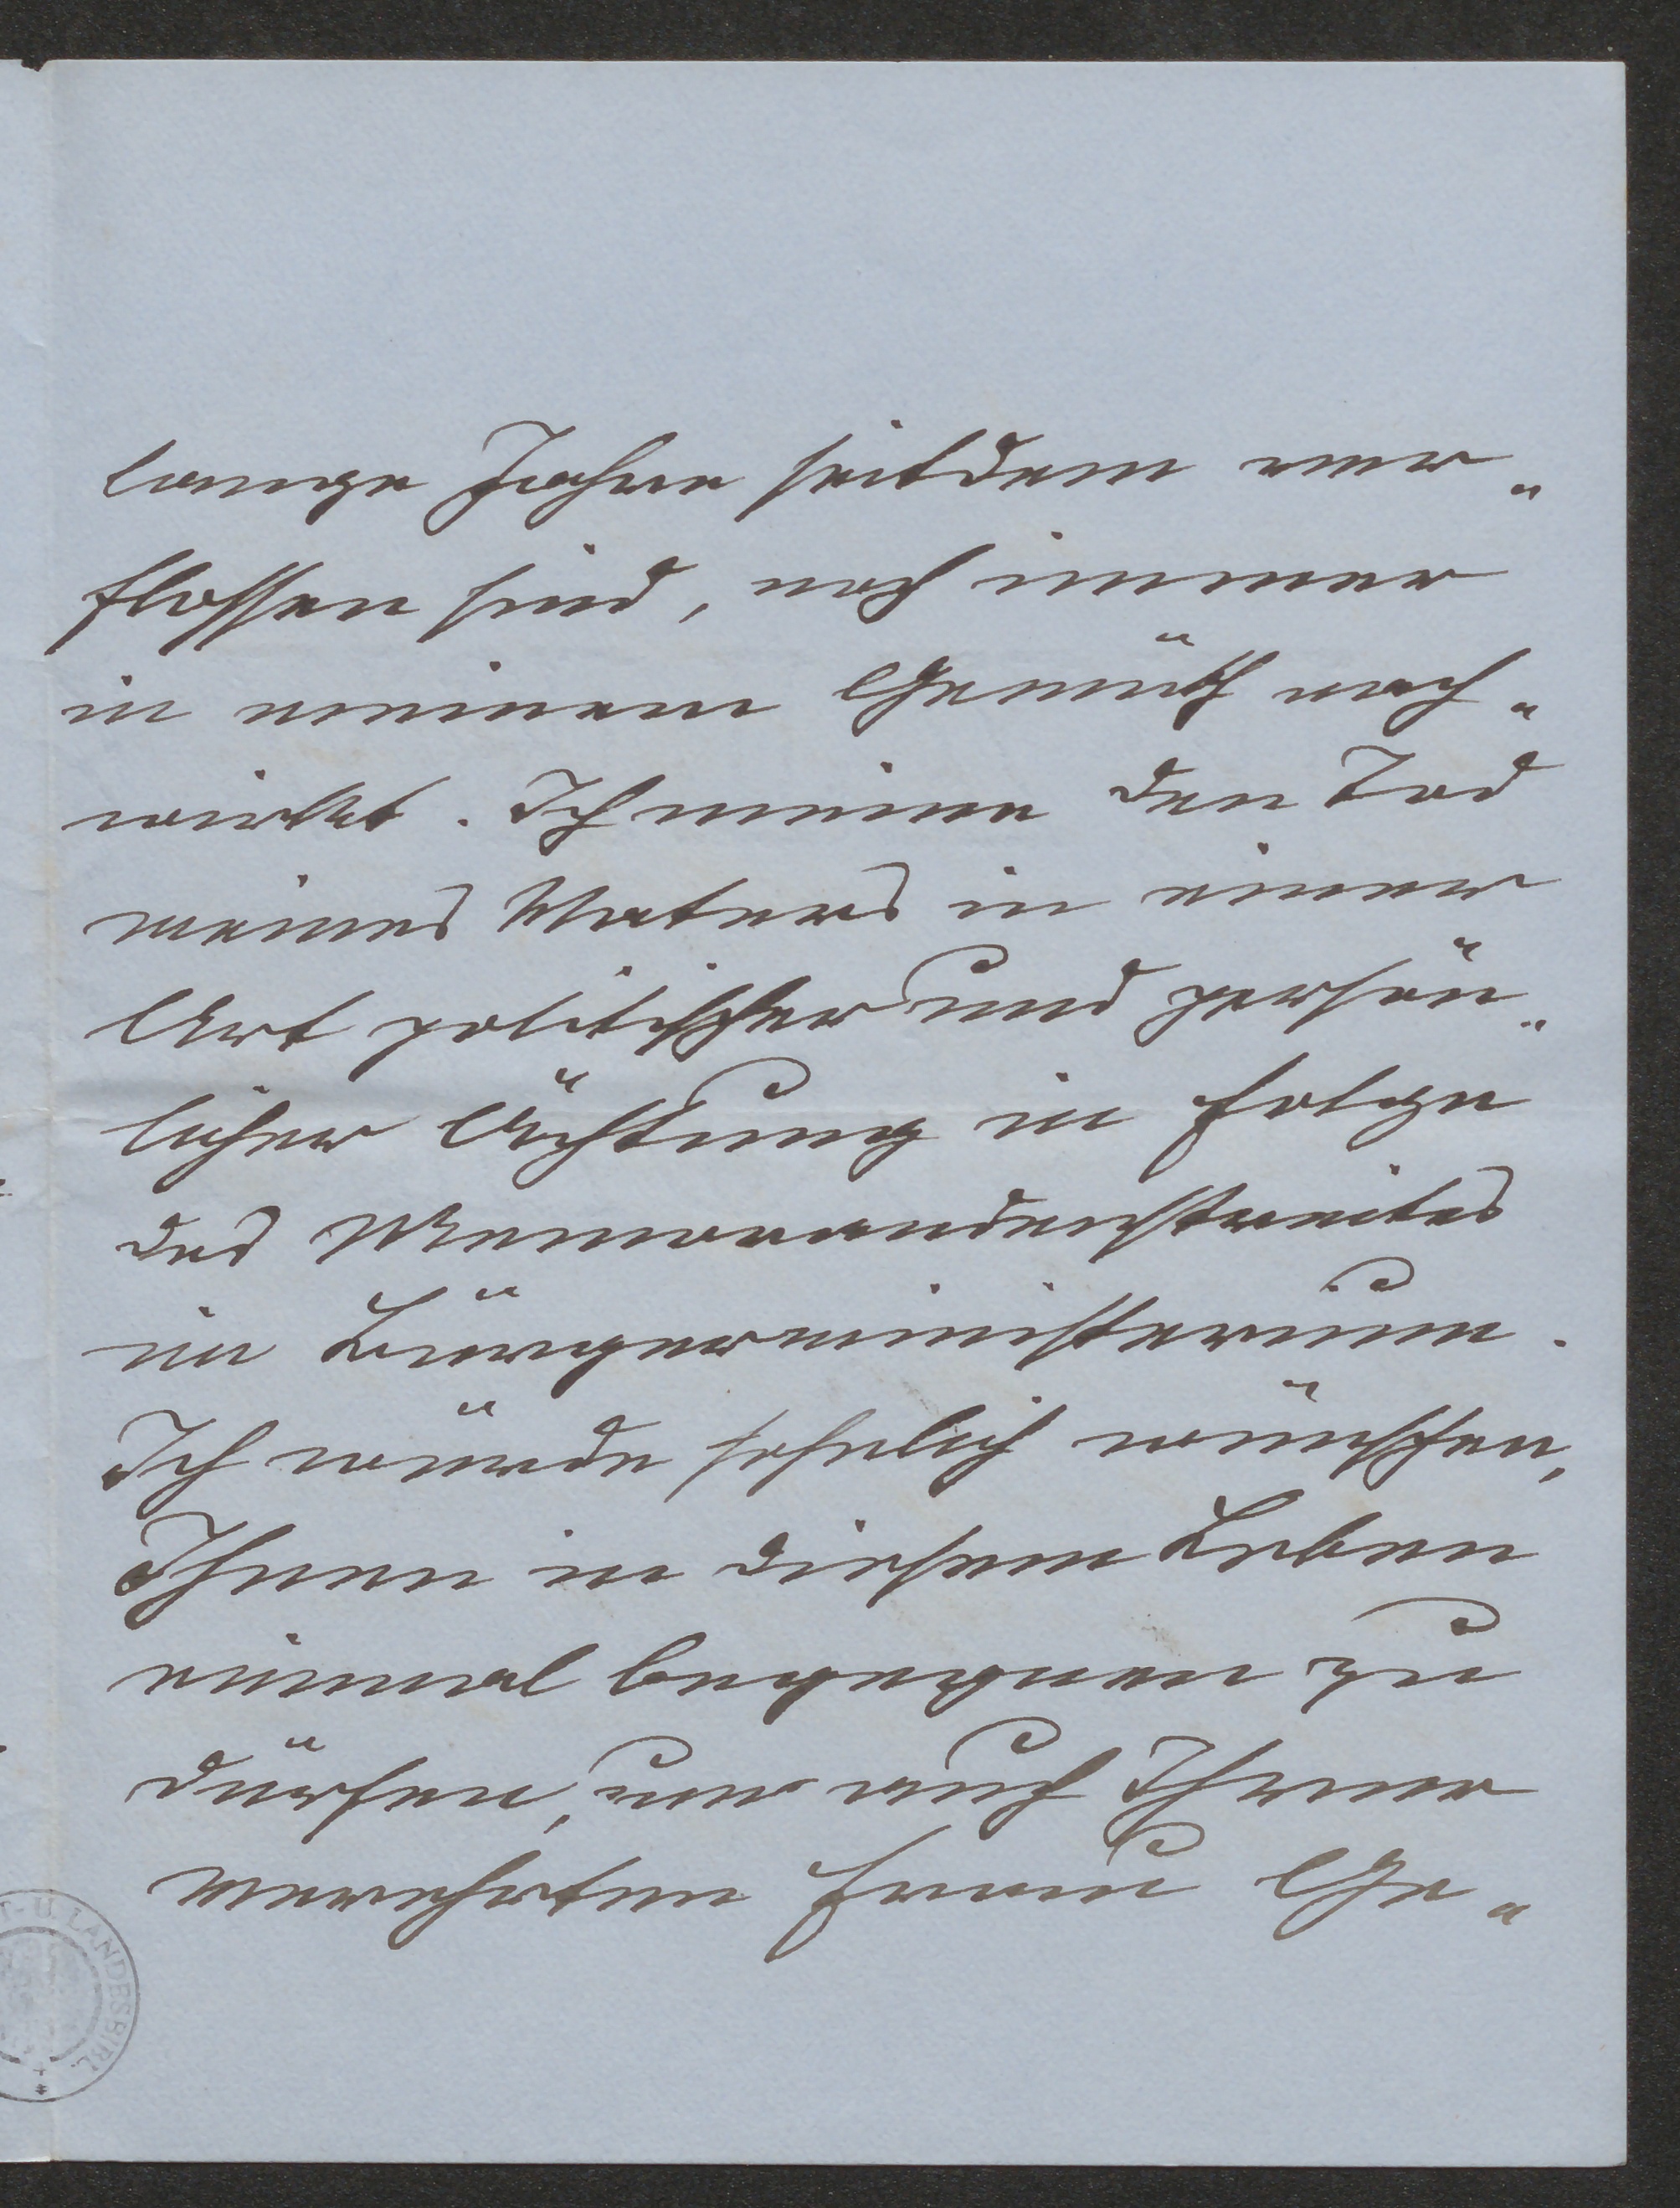 lange Jahre seitdem ver„
flossen sind, noch immer
in meinem Gemüth nach„
wirkt. Ich meine den Tod
meines Vaters in einer
Art politischer und persön„
licher Ächtung in Folge
des Memorandenstreites
im Bürgerministerium.
Ich würde sehnlich wünschen,
Ihnen in diesem Leben
einmal begegnen zu
dürfen, um auch Ihrer
verehrten Frau Ge„
T.- U. LANDESBIBL.